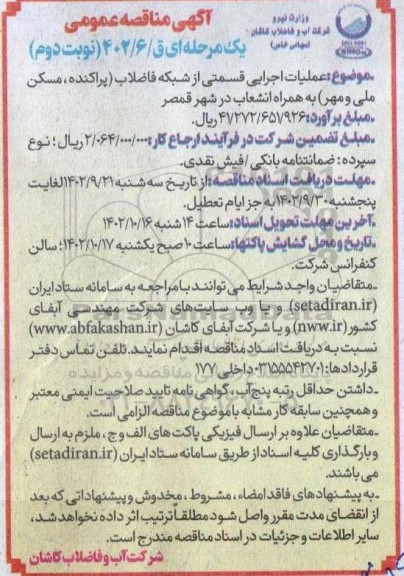 وزارت نیرو
شرکت آب و فاضلاب کاشان
(سهامی خاص)
آگهی مناقصه عمومی
یک مرحله‌ای ق/۴۰۲/۶ (نوبت دوم)
ـ موضوع: عملیات اجرایی قسمتی از شبکه فاضلاب (پراکنده، مسکن
ملی و مهر) به همراه انشعاب در شهر قمصر
ـ مبلغ برآورد: ۴۷۲۷۲/۶۵۷۹۲۶ ریال.
ـ مبلغ تضمین شرکت در فرآیند ارجاع کار: ۲/۰۶۴/۰۰۰/۰۰۰ ریال؛ نوع
سپرده: ضمانتنامه بانکی/فیش نقدی.
ـ مهلت دریافت اسناد مناقصه: از تاریخ سه شنبه ۱۴۰۲/۹/۲۱ لغایت
پنجشنبه ۱۴۰۲/۹/۳۰ به جز ایام تعطیل.
ـ آخرین مهلت تحویل اسناد: ساعت ۱۴ شنبه ۱۴۰۲/۱۰/۱۶
ـ تاریخ و محل گشایش پاکتها: ساعت ۱۰ صبح یکشنبه ۱۴۰۲/۱۰/۱۷؛ سالن
کنفرانس شرکت.
ـ متقاضیان واجد شرایط می توانند با مراجعه به سامانه ستاد ایران
(setadiran.ir) و یا وب سایت‌های شرکت مهندسی آبفای
کشور (nww.ir) و یا شرکت آبفای کاشان (www.abfakashan.ir)
نسبت به دریافت اسناد مناقصه اقدام نمایند. تلفن تماس دفتر
قراردادها: ۰۳۱۵۵۵۴۲۷۰۱ داخلی ۱۷۷
ـ داشتن حداقل رتبه پنج آب، گواهی نامه تایید صلاحیت ایمنی معتبر
و همچنین سابقه کار مشابه با موضوع مناقصه الزامی است.
ـ متقاضیان علاوه بر ارسال فیزیکی پاکت های الف و ج، ملزم به ارسال
و بارگذاری کلیه اسناد از طریق سامانه ستاد ایران (setadiran.ir)
می باشند.
ـ به پیشنهادهای فاقد امضاء، مشروط، مخدوش و پیشنهاداتی که بعد
از انقضای مدت مقرر واصل شود مطلقاً ترتیب اثر داده نخواهد شد،
سایر اطلاعات و جزئیات در اسناد مناقصه مندرج است.
شرکت آب و فاضلاب کاشان